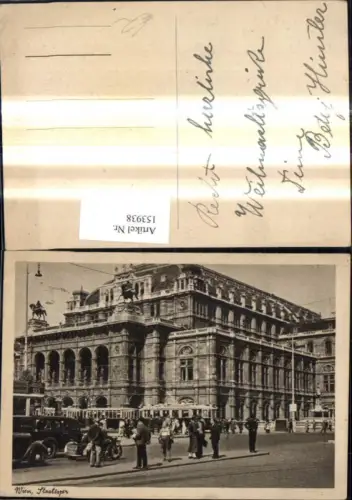 Recht herzliche
Weihnachtsgrüße
Betty
Artikel Nr.
153938
Wien, Staatsoper